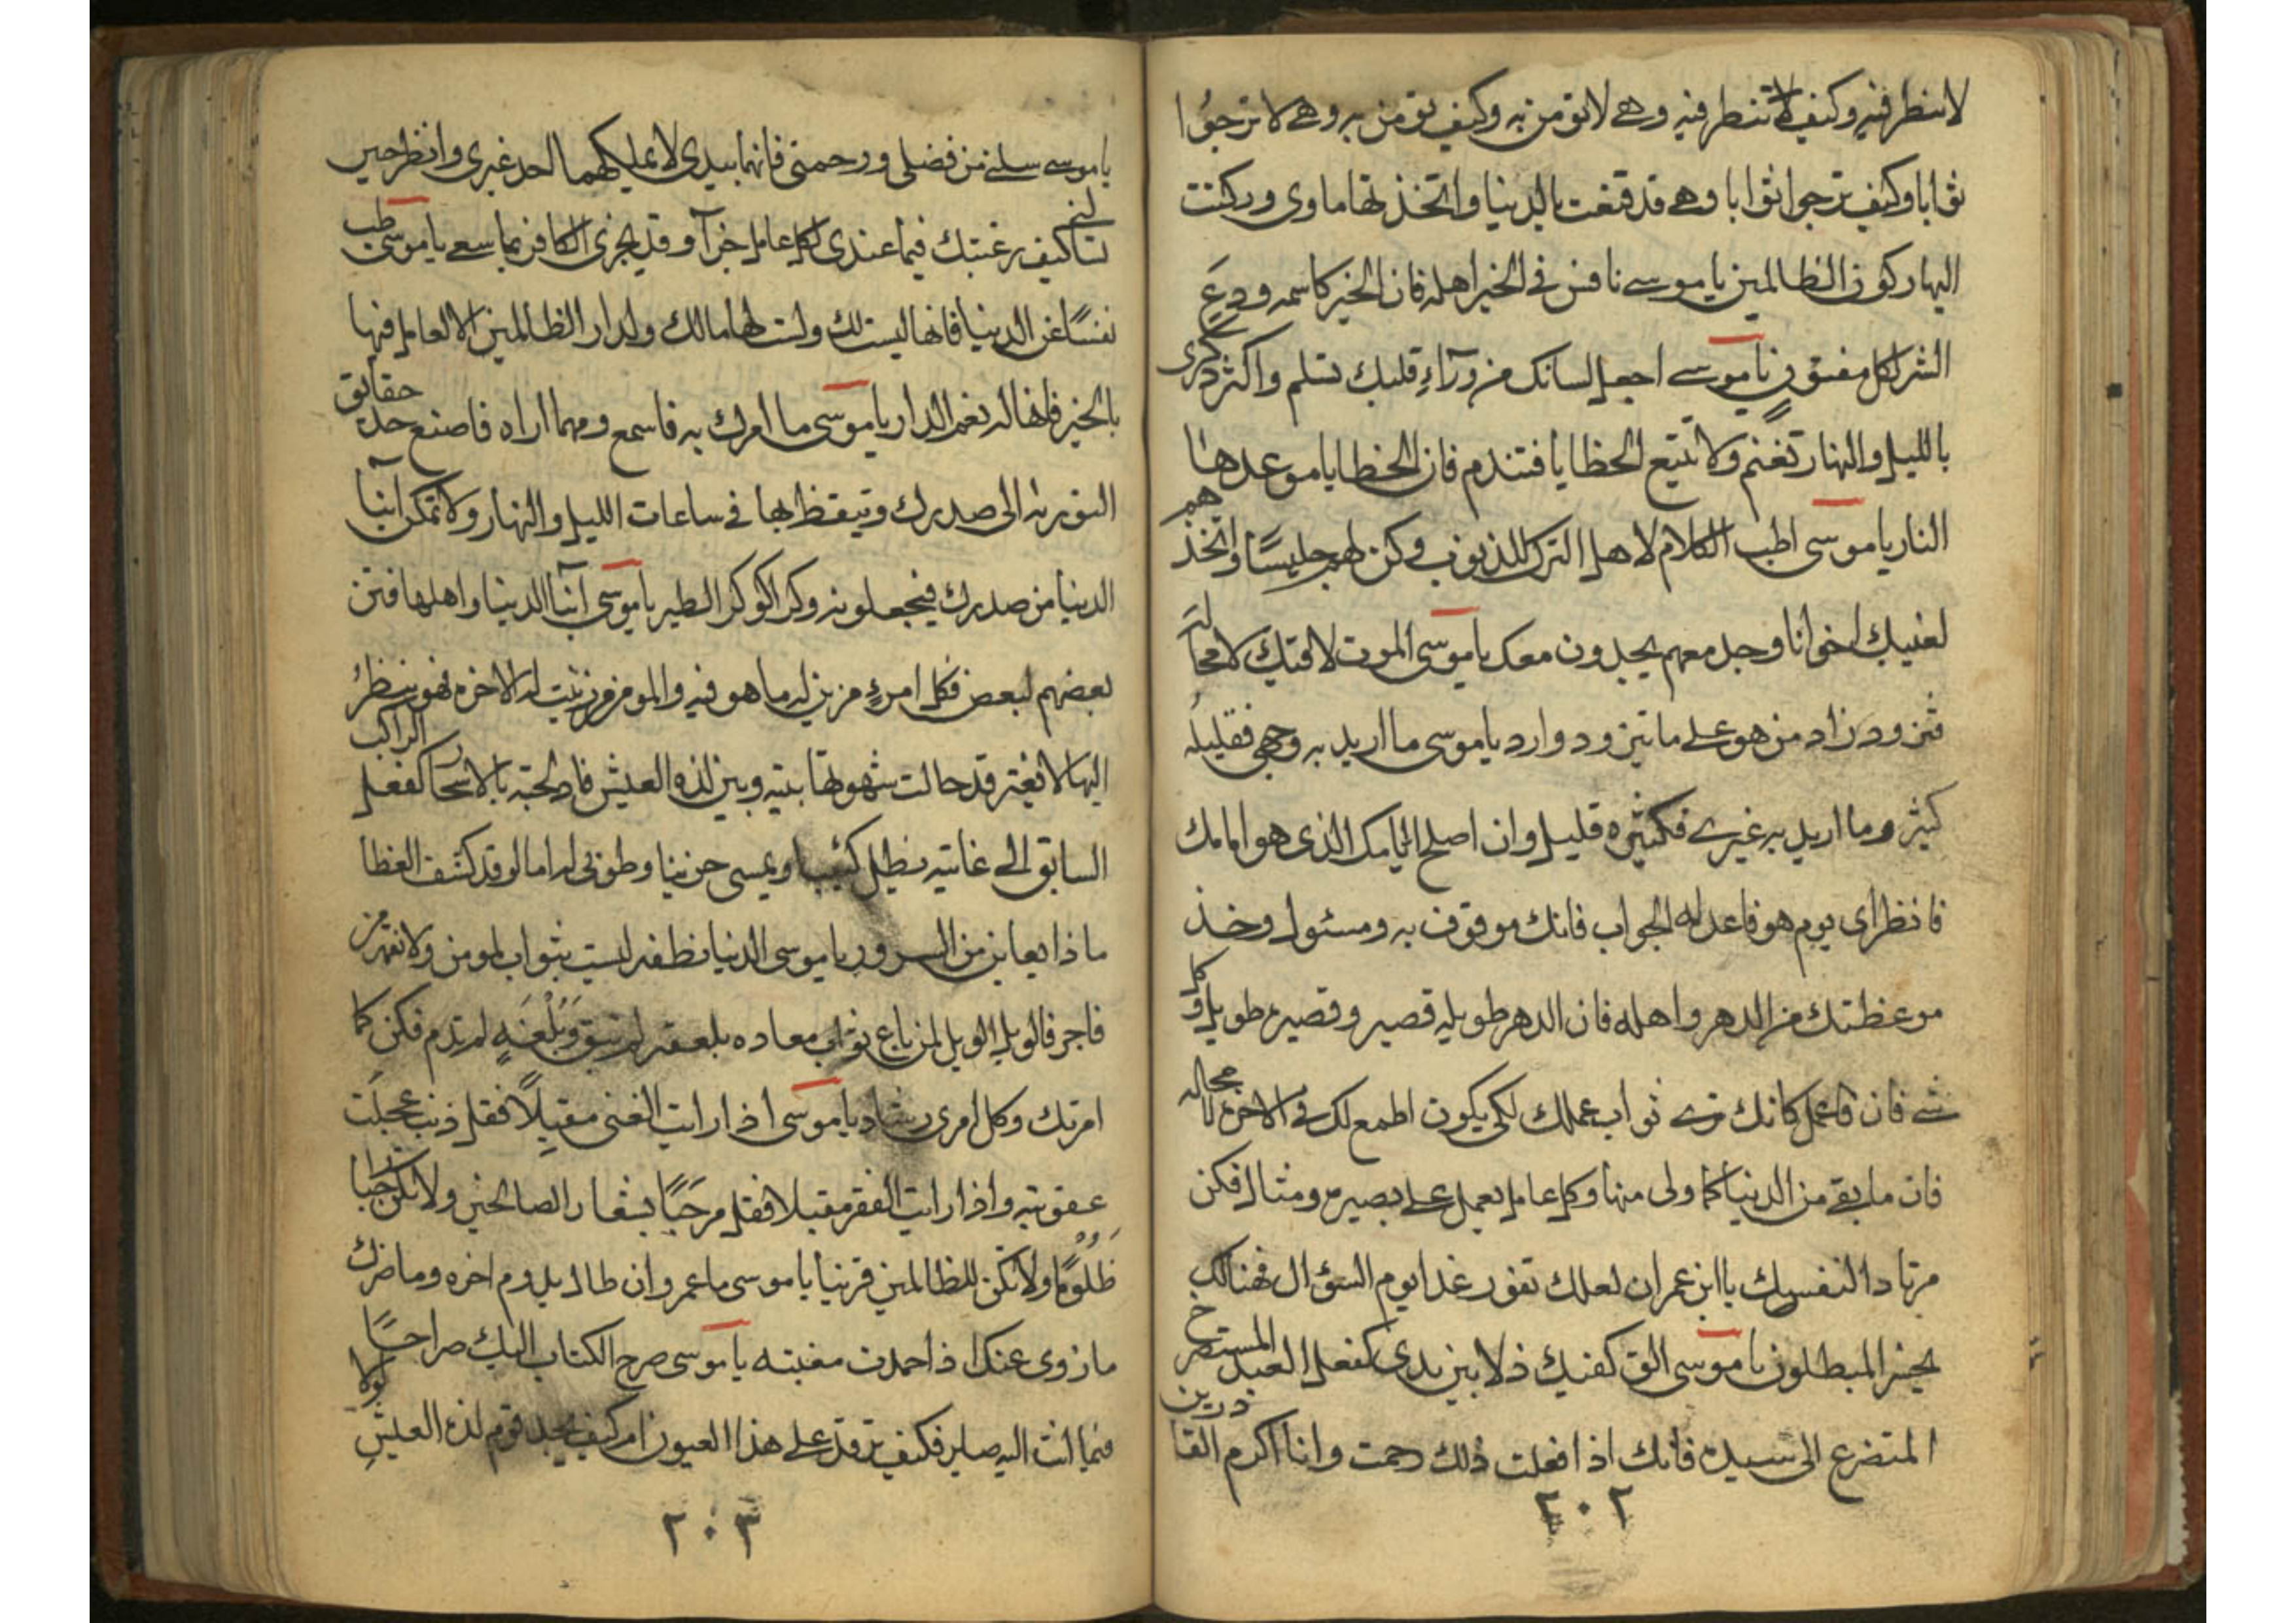 لا تنظر فيه وكيف لا تنظر فيه وهي لا تؤمن به وكيف تؤمن به وهي لا ترجوا
ثوابا وكيف ترجوا ثوابا وهي قد قنعت بالدنيا واتخذتها ماوى وركنت
اليها ركون الظالمين يا موسى نافس في الخير اهله فان الخير كاسمه ودع
الشر لكل مفتون يا موسى اجعل لسانك من وراء قلبك تسلم واكثر ذكرى
بالليل والنهار تغنم ولا تتبع الخطايا فتندم فان الخطايا موعدها
النار يا موسى اطب الكلام لاهل الترك للذنوب وكن لهم جليسا واتخذهم
لغيبك اخوانا وجد معهم يجدون معك يا موسى الموت لاقيك لا محالة
فتزود زاد من هو على ما يتزود وارد يا موسى ما اريد به وجهي فقليله
كثير وما اريد به غيري فكثيره قليل وان اصلح ايامك الذى هو امامك
فانظر اى يوم هو فاعد له الجواب فانك موقوف به ومسئول وخذ
موعظتك من الدهر واهله فان الدهر طويله قصير وقصيره طويل وكل
شي فان فاعمل كانك ترى ثواب عملك لكي يكون اطمع لك في الاخرة لا محالة
فان ما بقي من الدنيا كما ولى منها وكل عامل يعمل على بصيرة ومثال فكن
مرتادا لنفسك يا ابن عمران لعلك تفوز غدا يوم السؤال فهنالك
يخسر المبطلون يا موسى الق كفيك ذلا بين يدى كفعل العبد المستصرخ
المتضرع الى سيده فانك اذا فعلت ذلك رحمت وانا اكرم القادرين
٢٠٢
يا موسى سلني من فضلي ورحمتي فانهما بيدى لا يملكهما احد غيرى وانظر حين
تسألني كيف رغبتك فيما عندى لكل عامل جزآ وقد يجزى الكافر بما سعى يا موسى طب
نفسًا عن الدنيا فانها ليست لك ولست لها مالك ولدار الظالمين الا لعامل فيها
بالخير فانها له نعم الدار يا موسى ما امرك به فاسمع ومهما اراه فاصنع خذ حقايق
التورية الى صدرك وتيقظ بها في ساعات الليل والنهار ولا تمكن ابنآ
الدنيا من صدرك فيجعلونه وكرا كوكر الطير يا موسى ابنآ الدنيا واهلها فتن
بعضهم لبعض فكل امرئ مزين له ما هو فيه والمومن من زينت له الاخرة فهو ينظر
اليها لا يفتر قد حالت شهوتها بينه وبين لذة العيش فادلجته بالاسحار كفعل الراكب
السابق الى غايته يظل كئيبا ويمسى حزينا وطوبى له اما لو قد كشف الغطا
ماذا يعاين من السرور يا موسى الدنيا نطفة ليست بثواب لمومن ولا نقمة من
فاجر فالويل الويل لمن باع ثواب معاده بلعقة لم تبق وبلعبة لم تدم فكن كما
امرتك وكل امرى رشاد يا موسى اذا رايت الغنى مقبلاً فقل ذنب عجلت
عقوبته واذا رايت الفقر مقبلا فقل مرحبًا بشعار الصالحين ولا تكن جبارا
ظلومًا ولا تكن للظالمين قرينا يا موسى ما عمر وان طال يدوم اخره وما ضرك
ما زوى عنك اذا حمدت مغبته يا موسى صرح الكتاب اليك صراحًا
فيما انت اليه صاير فكيف ترقد على هذا العيون ام كيف يجد قوم لذة العيش لولا
٢٠٣